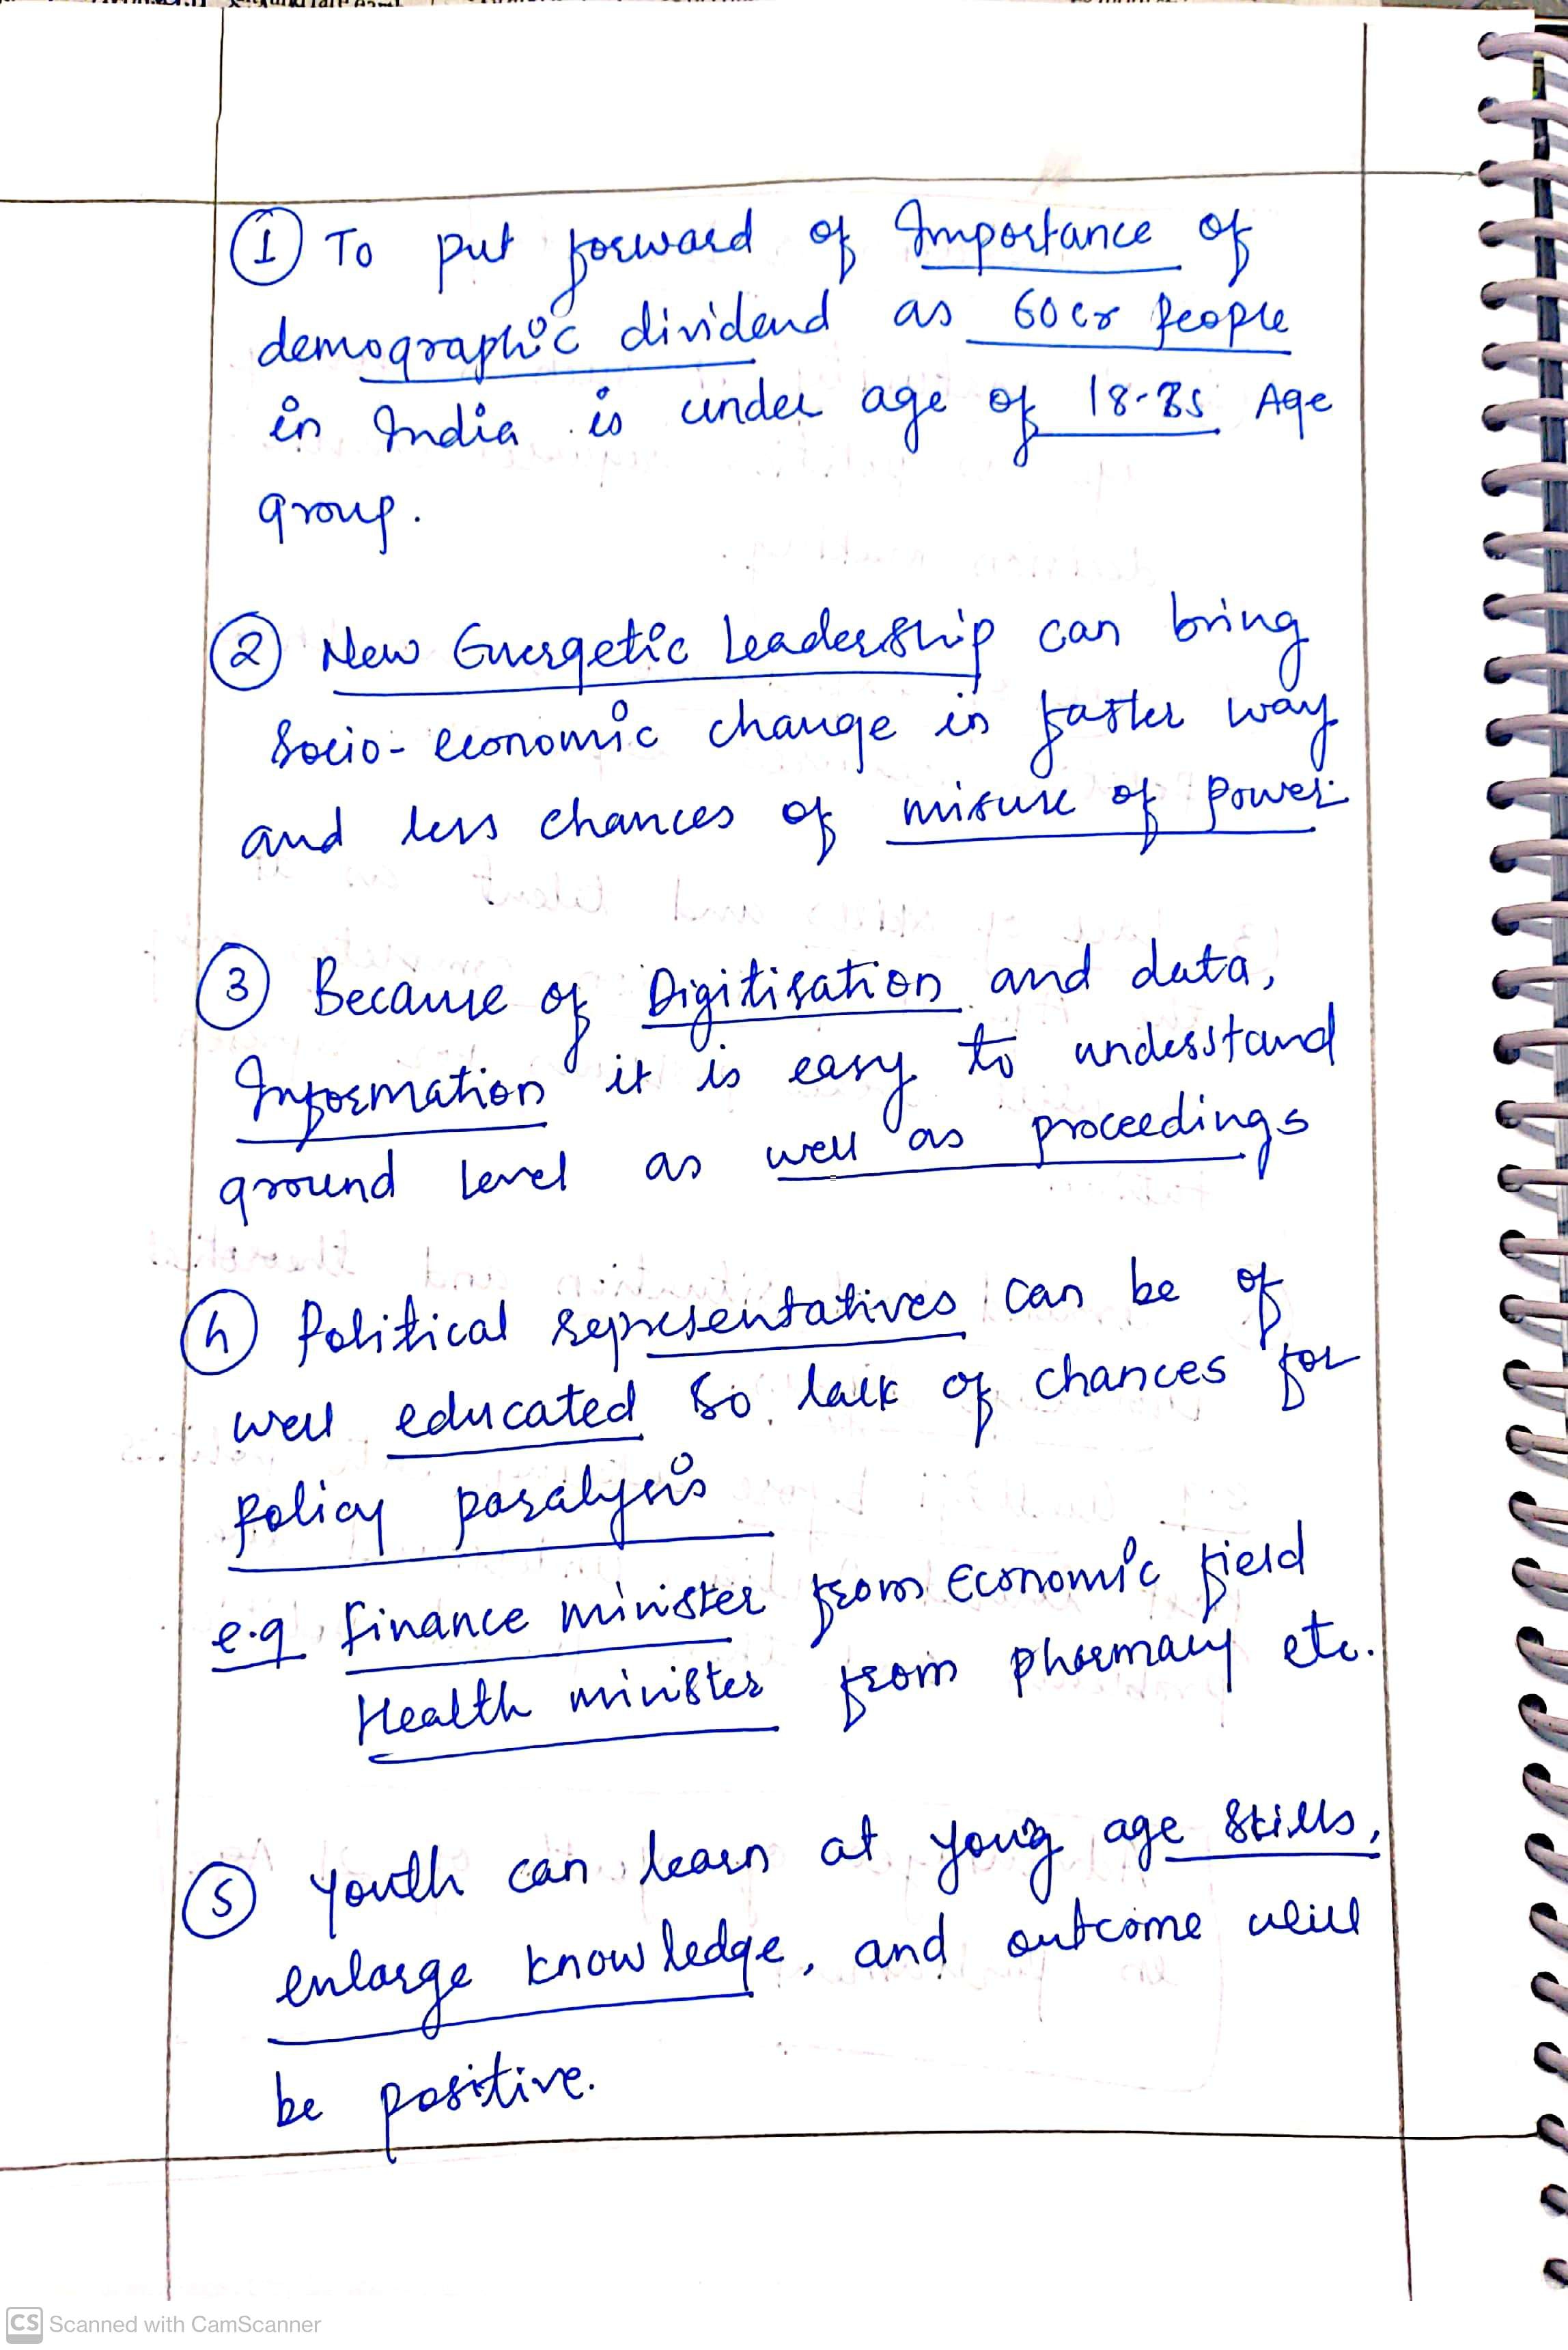 ① To put forward of Importance of
demographic dividend as 60cr people
in India is under age of 18-35 Age
group.
② New Energetic Leadership can bring
Socio-economic change in faster way
and less chances of misuse of power.
③ Because of Digitisation and data,
Information it is easy to understand
ground level as well as proceedings
④ Political representatives can be of
well educated so lack of chances for
policy paralysis
e.g finance minister from Economic field
Health minister from pharmacy etc.
⑤ Youth can learn at young age skills,
enlarge knowledge, and outcome will
be positive.
CS Scanned with CamScanner